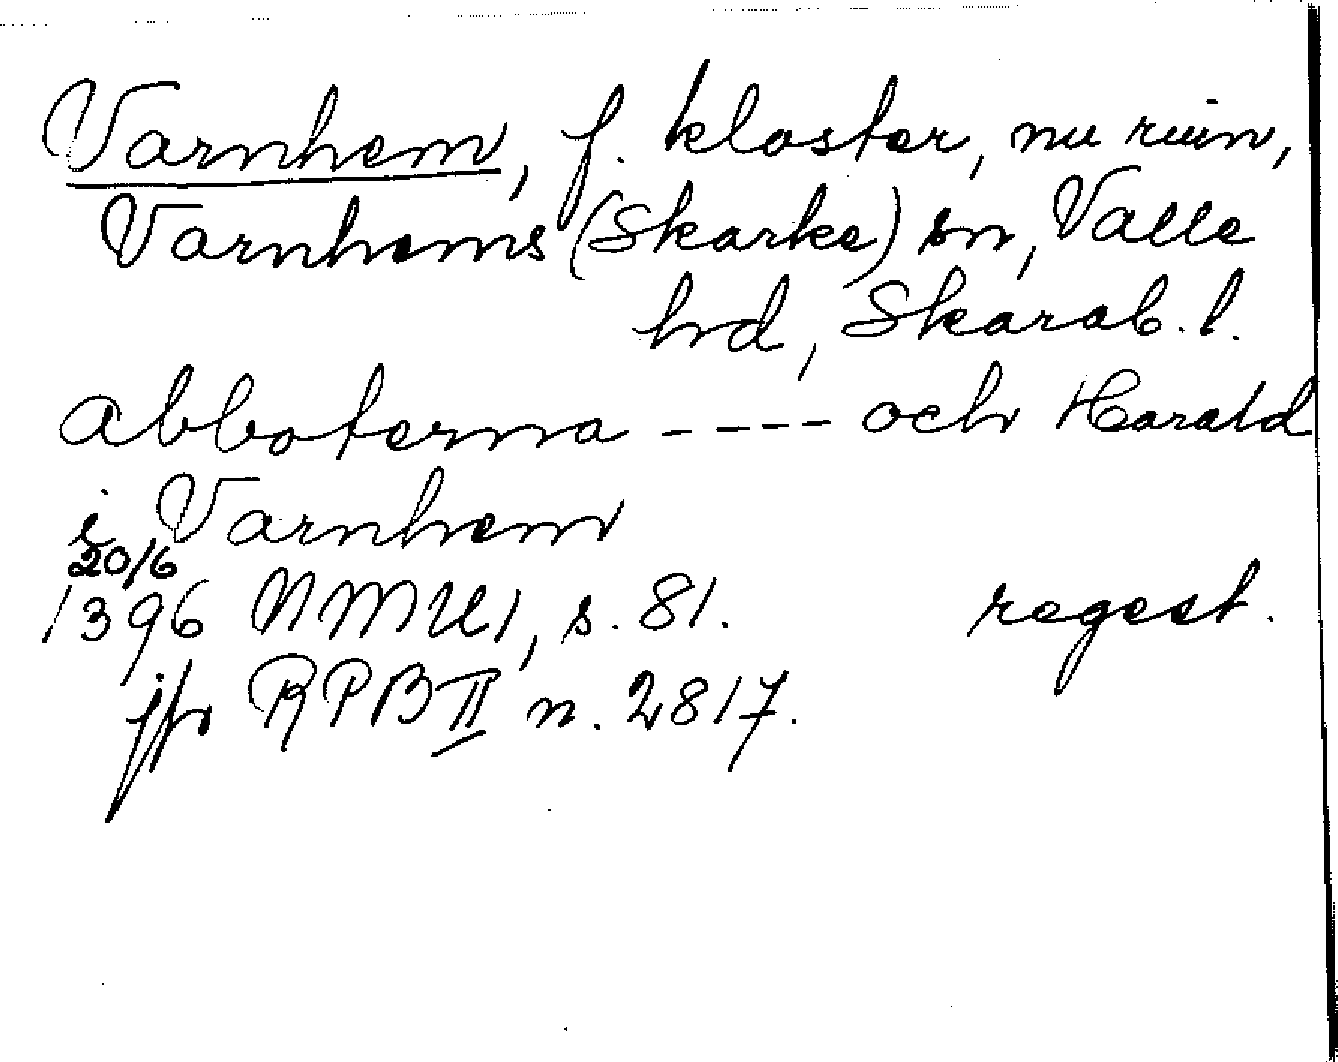 Varnhem, f. kloster, nu ruin,
Varnhems (Skarke) sn, Valle
hd, Skarab. l.
abboterna ---- och Harald
i Varnhem
20/6
1396 NMU1, s. 81. regest.
jfr RPB II n. 2817.